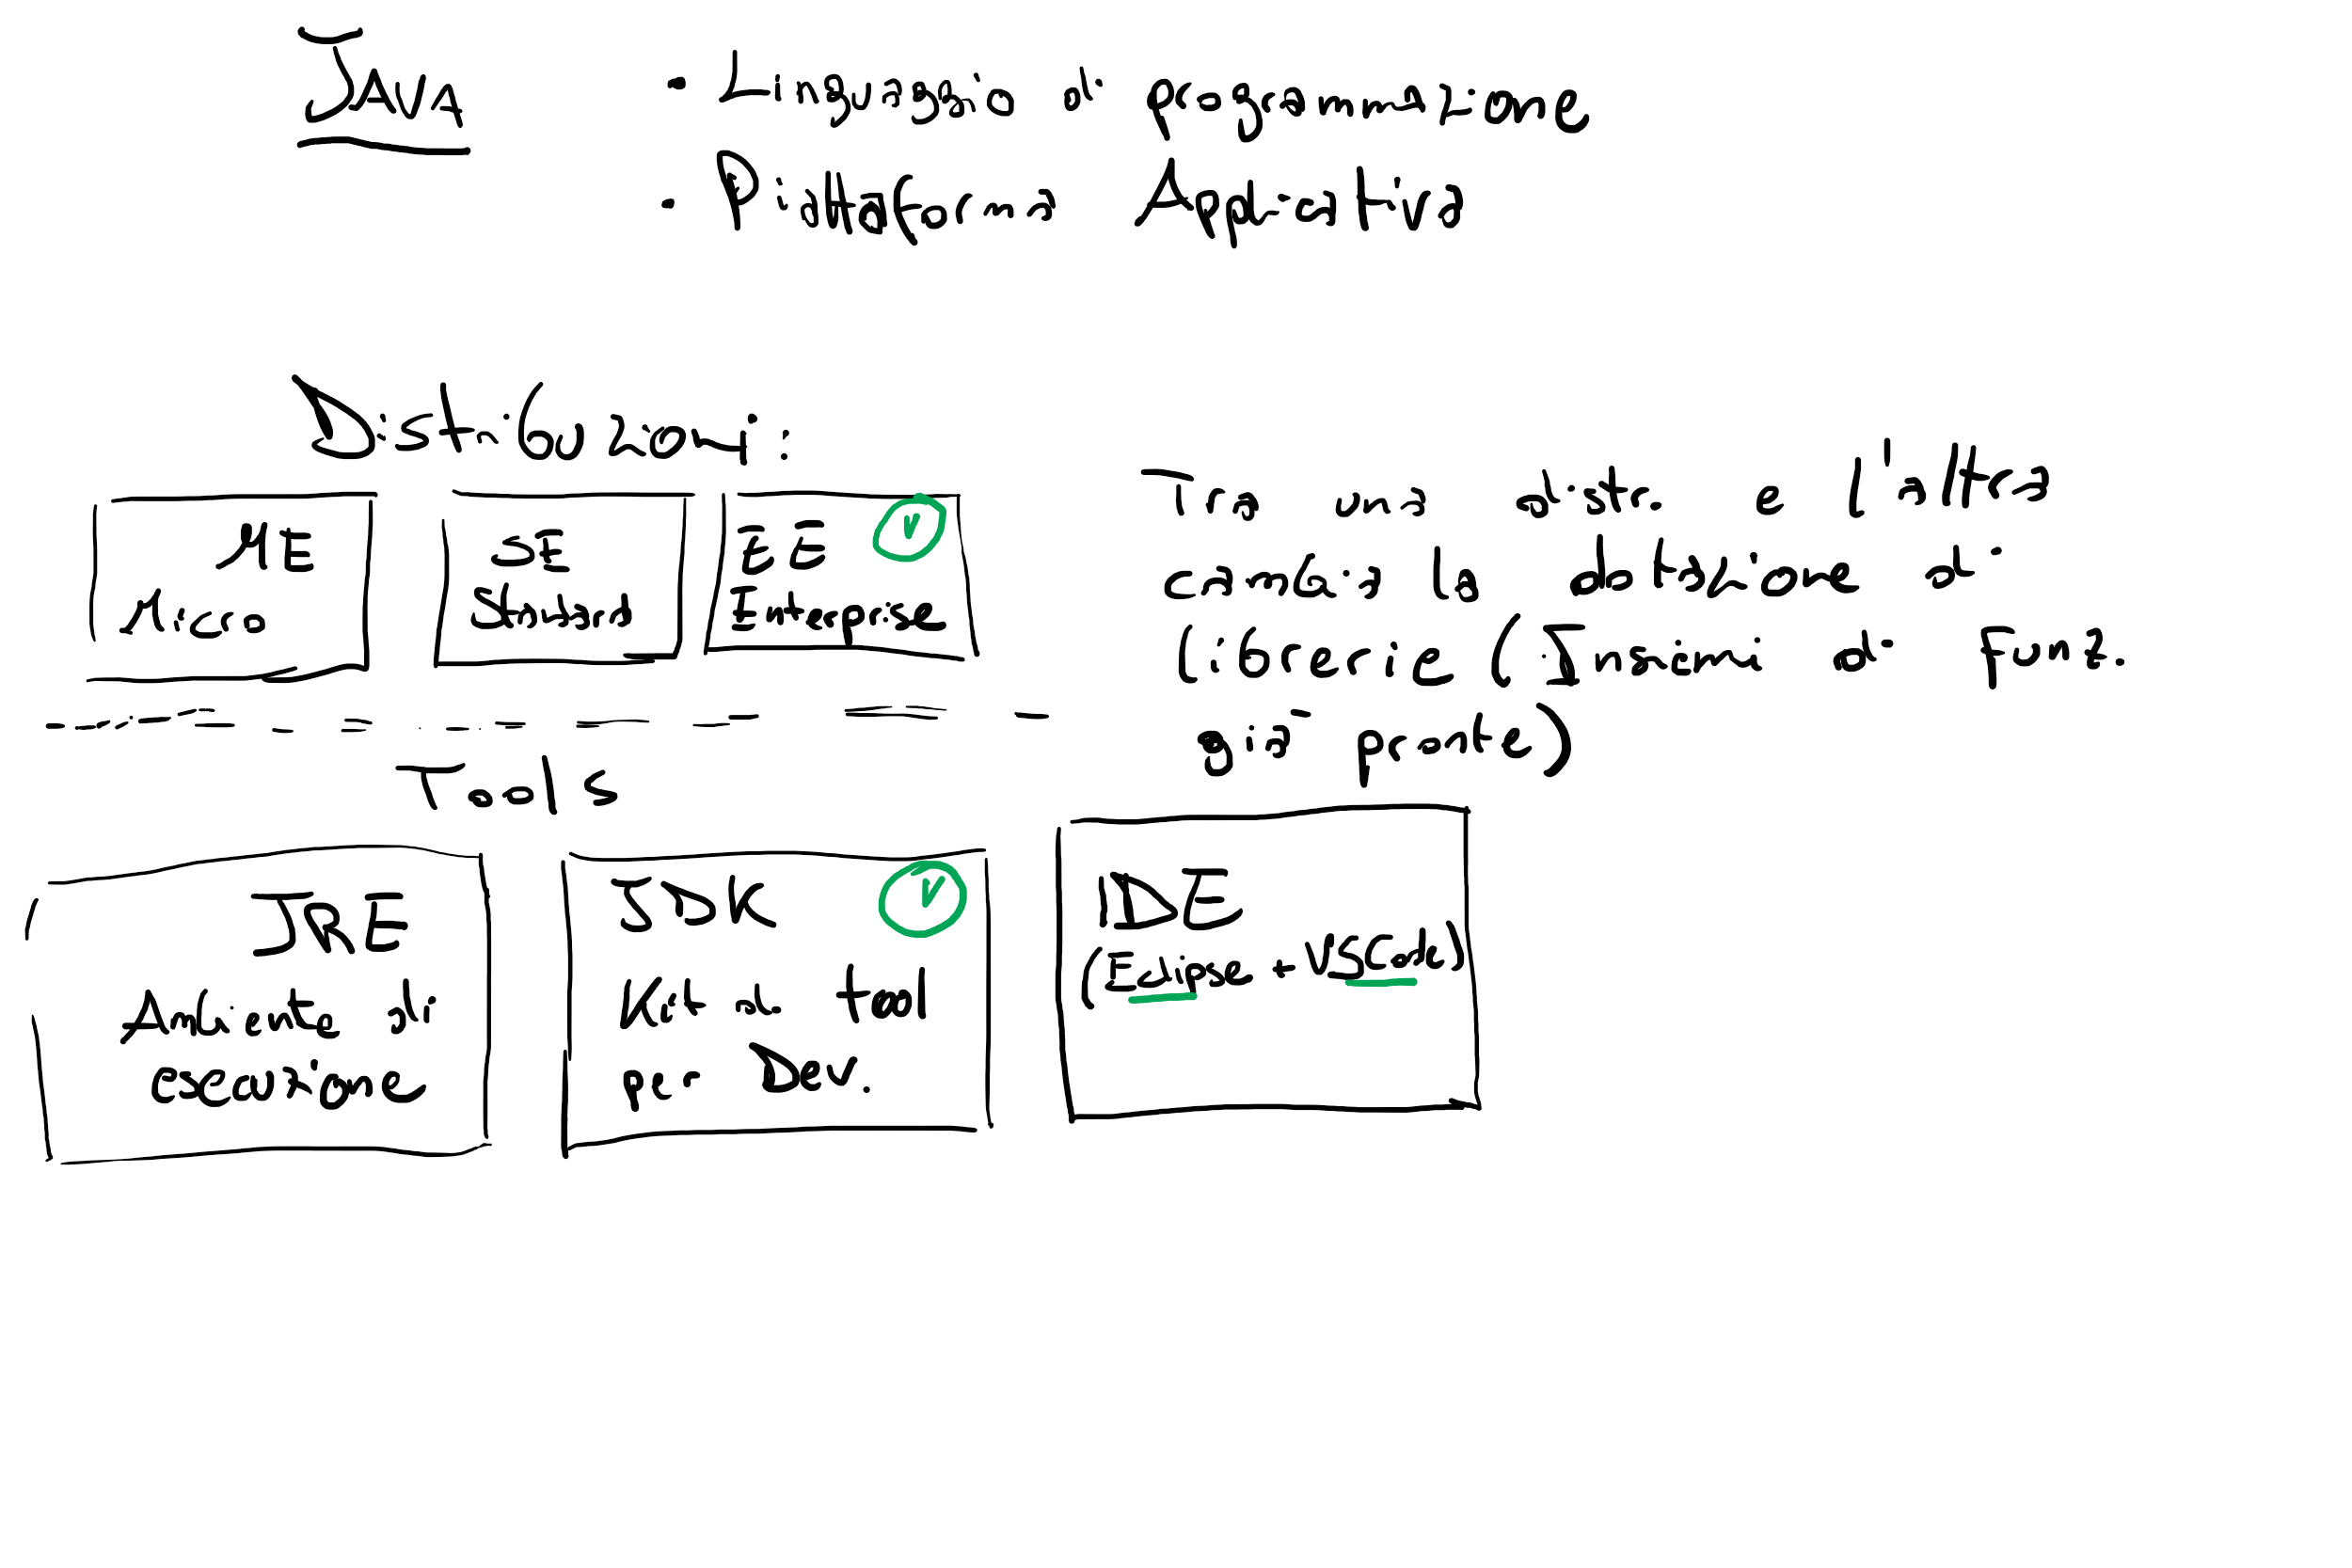 JAVA
• Linguaggio di programmazione
• Piattaforma Applicativa
Distribuzioni:
ME
Micro
SE
Standard
EE
Enterprise
Tra una distr. e l'altra
cambia la dotazione di
librerie (Insiemi di Funz.
già pronte)
Tools
JRE
Ambiente di
esecuzione
JDK
Kit di tool
per Dev.
IDE
(Eclipse + VSCode)